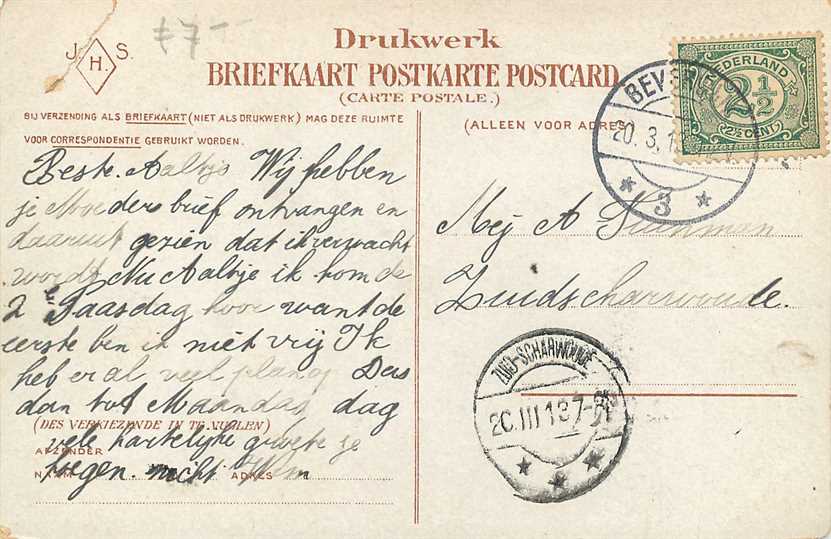 £7-
J. H. S.
Drukwerk
BRIEFKAART POSTKARTE POSTCARD
(CARTE POSTALE.)
BIJ VERZENDING ALS BRIEFKAART (NIET ALS DRUKWERK) MAG DEZE RUIMTE
VOOR CORRESPONDENTIE GEBRUIKT WORDEN.
(ALLEEN VOOR ADRES
NEDERLAND
2½
(2½ CENT)
BEV
20. 3. 1
3
Beste Aaltje Wij hebben
je Moeders brief ontvangen en
daaruit gezien dat ik verwacht
wordt Nu Aaltje ik kom de
2e Paasdag hoor want de
eerste ben ik niet vrij Ik
heb er al veel Dus
dan tot Maandag dag
(DES VERKIEZENDE IN TE VULLEN)
vele hartelijke groete je
AFZENDER
nicht
NAAM ADRES
Mej A
Zuidscharwoude.
ZUID-SCHARWOUDE
20.III.13 7-